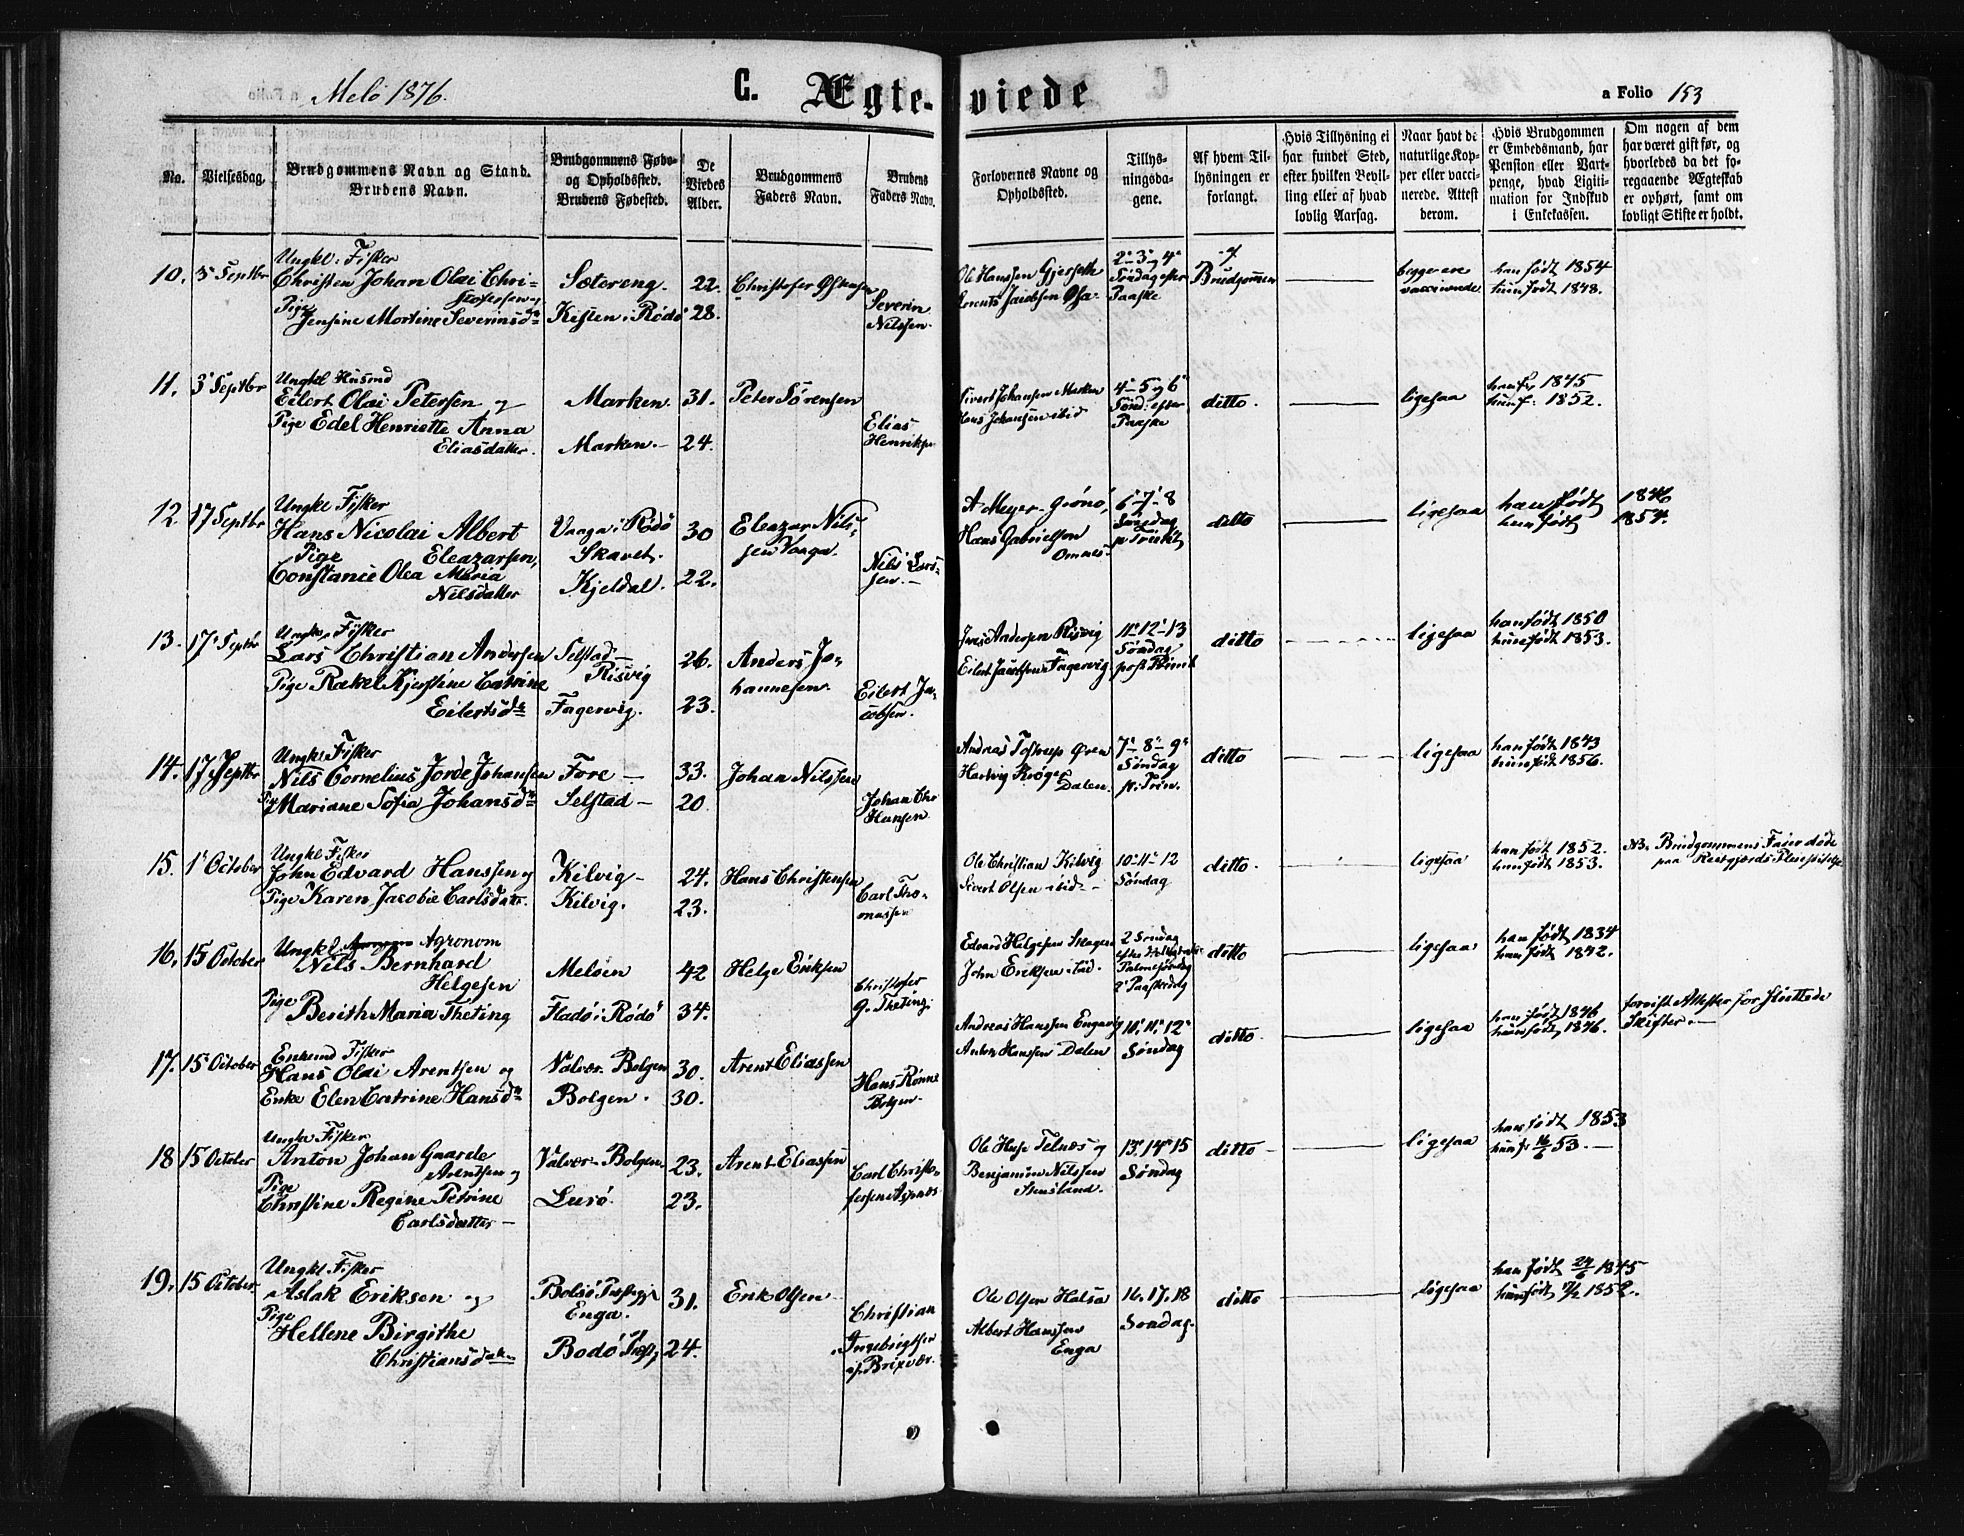 Melö 1876.
C. Ægte-viede
a Folio 153
No.
Vielsesdag.
Brudgommens Navn og Stand.
Brudens Navn.
Brudgommens Føde-
og Opholdssted.
Brudens Fødested.
De
Viedes
Alder.
Brudgommens
Faders Navn.
Brudens
Faders Navn.
Forlovernes Navne og
Opholdssted.
Tillys-
ningsda-
gene.
Af hvem Til-
lysningen er
forlangt.
Hvis Tillysning ei
har fundet Sted,
efter hvilken Bevil-
ling eller af hvad
lovlig Aarsag.
Naar havt de
naturlige Kop-
per eller vacci-
nerede. Attest
derom.
Hvis Brudgommen
er Embedsmand, har
Pension eller Vart-
penge, hvad Ligiti-
mation for Indskud
i Enkekassen.
Om nogen af dem
har været gift før, og
hvorledes da det fo-
regaaende Ægteskab
er ophørt, samt om
lovligt Skifte er holdt.
10. 3 Septbr
Ungkl. Fisker
Christen Johan Olai Chri-
stofersen og
Pige
Jensine Mortine Severinsdr
Sætereng. 22.
Kisten i Rödö 28.
Christofer Østensen
Severin
Nilssen.
Ole Hanssen Gjerseth
Lorents Jacobsen Øsa.
2 3 og 4
Söndag efter
Paaske
af
Brudgommen
begge ere
vaccinerede
han født 1854
hun født 1848.
11. 3 Septbr
Ungkl Husmd
Eilert Olai Petersen og
Pige Edel Henriette Anna
Eliasdatter.
Marken. 31.
Marken. 24.
Peter Sörensen
Elias
Henriksen
Sivert Johansen Marken
Hans Johansen ibid
4 5 og 6
Sönd: efter
Paaske
ditto.
ligesaa
han f. 1845
hun f: 1852.
12. 17 Septbr
Ungkl Fisker
Hans Nicolai Albert
Eleazarsen,
Pige
Constance Olea Maria
Nilsdatter
Vaaga i Rödö
Skavet. 30
Kjeldal. 22.
Eleazar Nils-
sen Vaaga.
Nils Lars-
sen.
A Meyer Grönö,
Hans Gabrielsen
Omnes
6 7 8
Söndag
p Trinit
ditto
ligesaa
han født 1846
hun født 1854.
13. 17 Septbr
Ungk. Fisker
Lars Christian Andersen
Pige Rakel Kjerstine Catrine
Eilertsdr
Selstad
Risvig 26.
Fagervig. 23.
Anders Jo-
hannesen.
Eilert Ja-
cobsen.
Jens Andersen Risvig
Eilert Jacobsen Fagervig
11 12 13
Söndag
post Trinit
ditto
ligesaa
han født 1850
hun født 1853.
14. 17 Septbr
Ungkl Fisker
Nils Cornelius Jorde Johansen
Pige Mariane Sofia Johansdr
Fore 33.
Selstad 20.
Johan Nilssen
Johan Chr
Hansen
Andreas Tostrup Øren
Hartvig Kröger
Dalen.
7 8 9
Söndag
p. Trin.
ditto
ligesaa
han født 1843
hun født 1856.
15. 1 October
Ungkl Fisker
John Edvard Hanssen og
Pige Karen Jacobie Carlsdatr.
Kilvig 24.
Kilvig. 23.
Hans Christensen
Carl Tho-
massen
Ole Christian Kilvig
Sivert Olsen ibid
10 11 12
Söndag
ditto.
ligesaa
han født 1852.
hun født 1853.
NB. Brudgommens Fader døde
paa Reitgjerdets Pleiestiftelse
16. 15 October
Ungkl Agronom
Nils Bernhard
Helgesen
Pige
Berith Maria Theting
Melöen 42
Fladö i Rödö 34.
Helge Eriksen
Christofer
G. Theting.
Edvard Helgesen Skagen
John Eriksen ibid.
2 Söndag
Palmesöndag
2 Paaskedag
ditto
ligesaa
han født 1834
hun født 1842.
17. 15 October
Enkemd Fisker
Hans Olai Arentsen og
Enke Elen Catrine Hansdr
Valvær Bolgen 30.
Bolgen. 30.
Arent Eliassen
Hans Rönne
Bolgen
Andreas Hanssen Engavig
Anton Hanssen Dalen
10. 11. 12
Söndag
ditto
ligesaa
han født 1846
hun født 1846.
forevist Attester for sluttede
Skifter.
18 15 October
Ungkl Fisker
Anton Johan Gaarde
Arentsen og
Pige
Christine Regine Petrine
Carlsdatter
Valvær Bolgen 23.
Lurö. 23.
Arent Eliassen
Carl Christo-
fersen Aspnæs
Ole Huse Telnæs og
Benjamin Nilssen
Stensland.
13 14 15
Söndag
ditto
ligesaa
han født 1853
hun f 16/6 53.
19. 15 October
Ungkl Fisker
Aslak Eriksen og
Pige
Hellene Birgithe
Christiansdatr
Bolsö Præstegj
Enga. 31.
Bodö Præstg 24.
Erik Olsen
Christian
Ingebrigtsen
af Brixvær.
Ole Olsen Halsa
Albert Hanssen
Enga
16. 17. 18
Söndag.
ditto
ligesaa
han født 24/6 1845
hun født 1852.